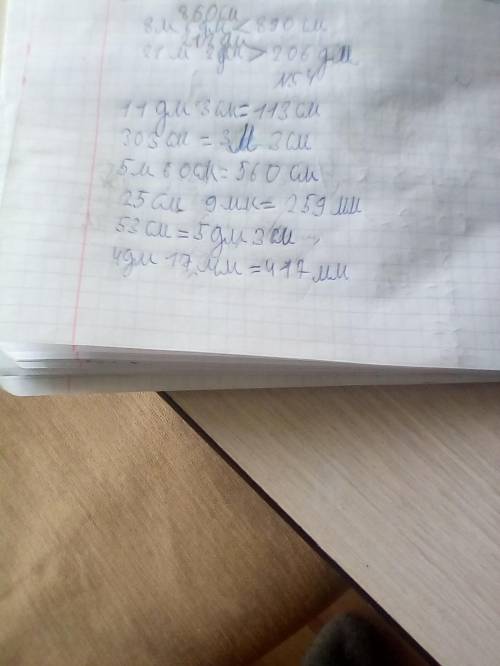 860 см
8м 6дм < 890 см
213 дм
21м 3дм > 206 дм
№4
11 дм 3 см = 113 см
303 см = 3м 3 см
5м 60 см = 560 см
25 см 9 мм = 259 мм
53 см = 5 дм 3 см
4дм 17 мм = 417 мм